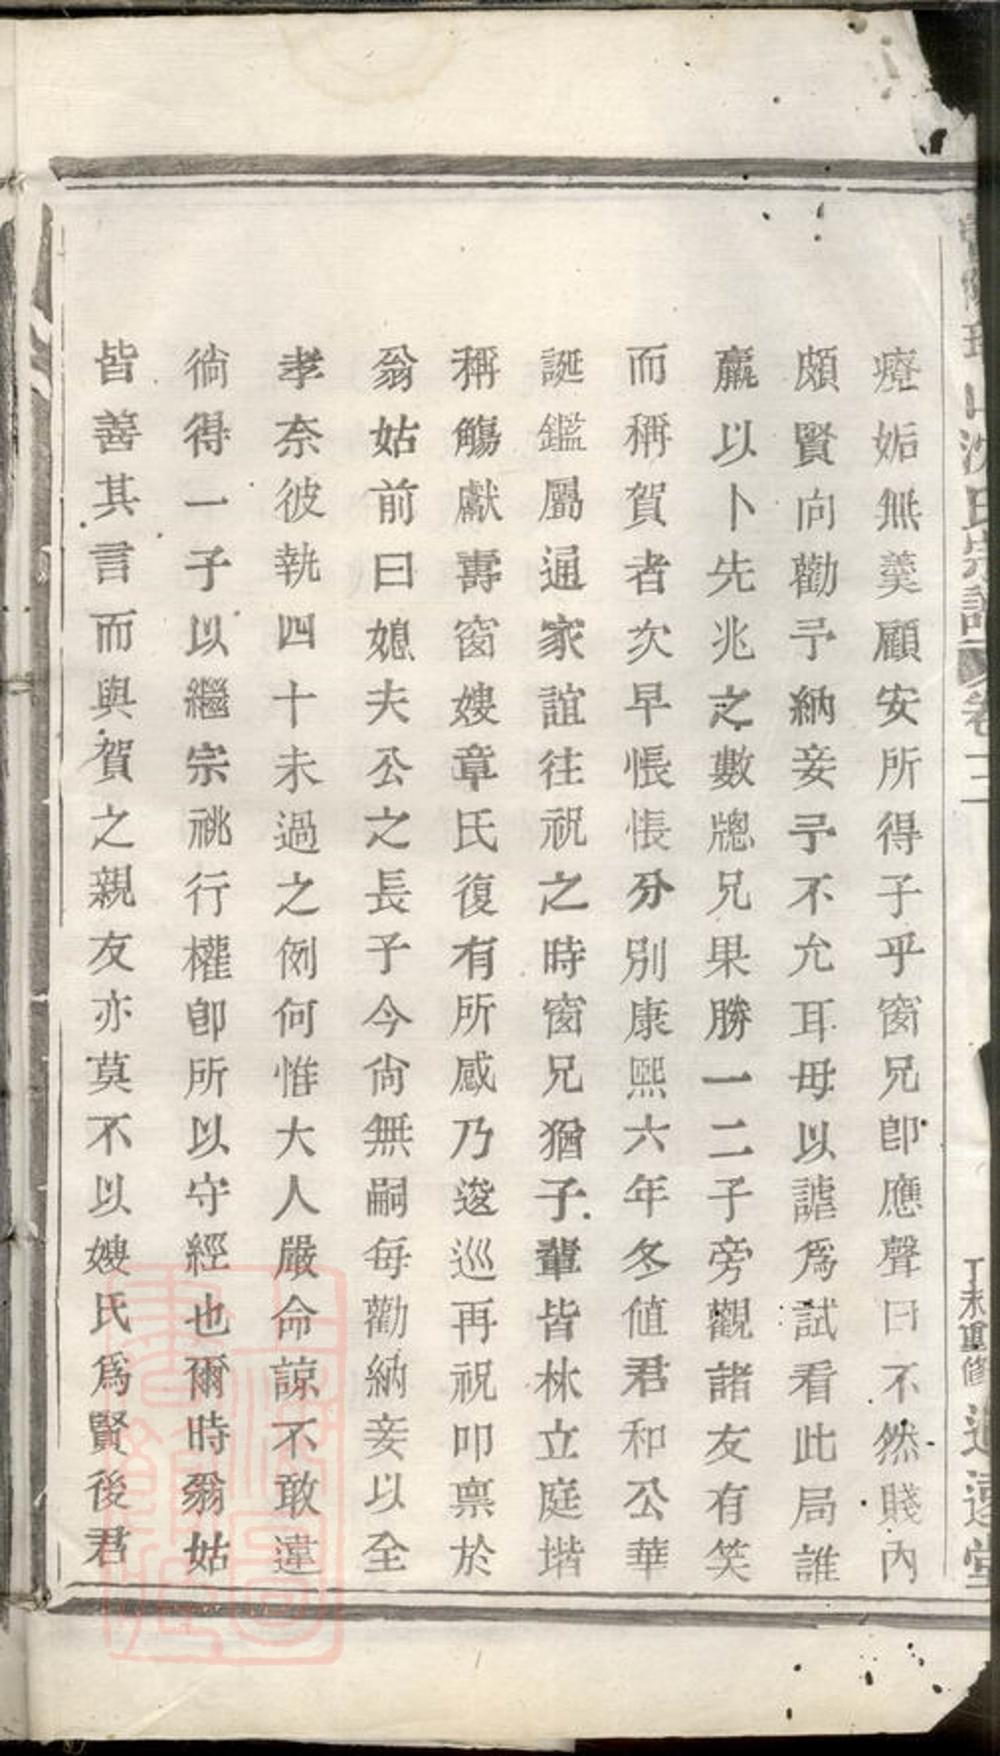 療妬無羹顧安所得子乎窗兄卽應聲曰不然賤內
頗賢向勸予納妾予不允耳毋以謔爲試看此局誰
贏以卜先兆之數牕兄果勝一二子旁觀諸友有笑
而稱賀者次早悵悵分別康熙六年冬值君和公華
誕鑑屬通家誼往祝之時窗兄猶子輩皆林立庭堦
稱觴獻壽窗嫂章氏復有所感乃逡巡再祝叩禀於
翁姑前曰媳夫公之長子今尙無嗣每勸納妾以全
孝奈彼執四十未過之例何惟大人嚴命諒不敢違
倘得一子以繼宗祧行權卽所以守經也爾時翁姑
皆善其言而與賀之親友亦莫不以嫂氏爲賢後君
山沈氏宗譜 卷十二
丁未重修 追遠堂